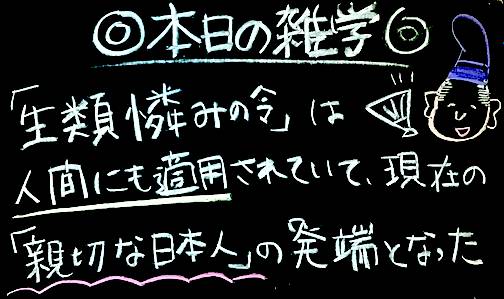 ◎本日の雑学◎
「生類憐みの令」は
人間にも適用されていて、現在の
「親切な日本人」の発端となった